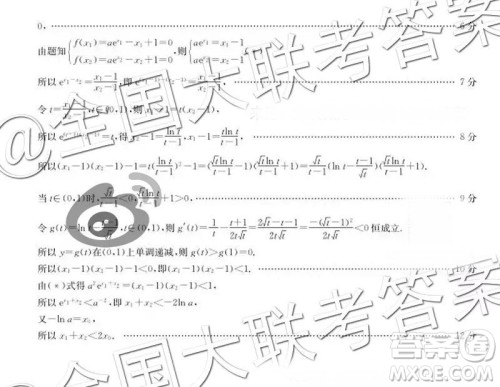 0. 6分
由题知{f(x₁)=ae^{x₁}-x₁+1=0, f(x₂)=ae^{x₂}-x₂+1=0},则{ae^{x₁}=x₁-1, ae^{x₂}=x₂-1
所以 e^{x₁-x₂}=(x₁-1)/(x₂-1),即 7分
令 t=(x₁-1)/(x₂-1),t∈(0,1),则 x₁-1=t(x₂-1),
所以 得 x₂-1=ln t/(t-1),x₁-1=tln t/(t-1). 8分
所以(x₁-1)(x₂-1)-1=t(ln t/(t-1))²-1=(√t ln t/(t-1)-1)(√t ln t/(t-1)+1)=√t/(t-1)(ln t-(t-1)/√t)(√t ln t/(t-1)+1).
当 t∈(0,1)时,√t/(t-1)<0,√t ln t/(t-1)+1>0, 9分
令 g(t)=ln t- t∈(0,1),则 g′(t)=1/t-(t+1)/(2t√t)=(2√t-t-1)/(2t√t)=-(√t-1)²/(2t√t)<0 恒成立.
所以 y=g(t)在(0,1)上单调递减,则 g(t)>g(1)=0.
所以(x₁-1)(x₂-1)-1<0,即(x₁-1)(x₂-1)<1. 10分
由(*)式得 a²e^{x₁+x₂}<1,
所以 e^{x₁+x₂}<a⁻²,即 x₁+x₂<-2ln a,
又-ln a=x₀,
所以 x₁+x₂<2x₀. 12分
@全国大联考答案
@全国大联考答案
答案圈
MXQE.COM